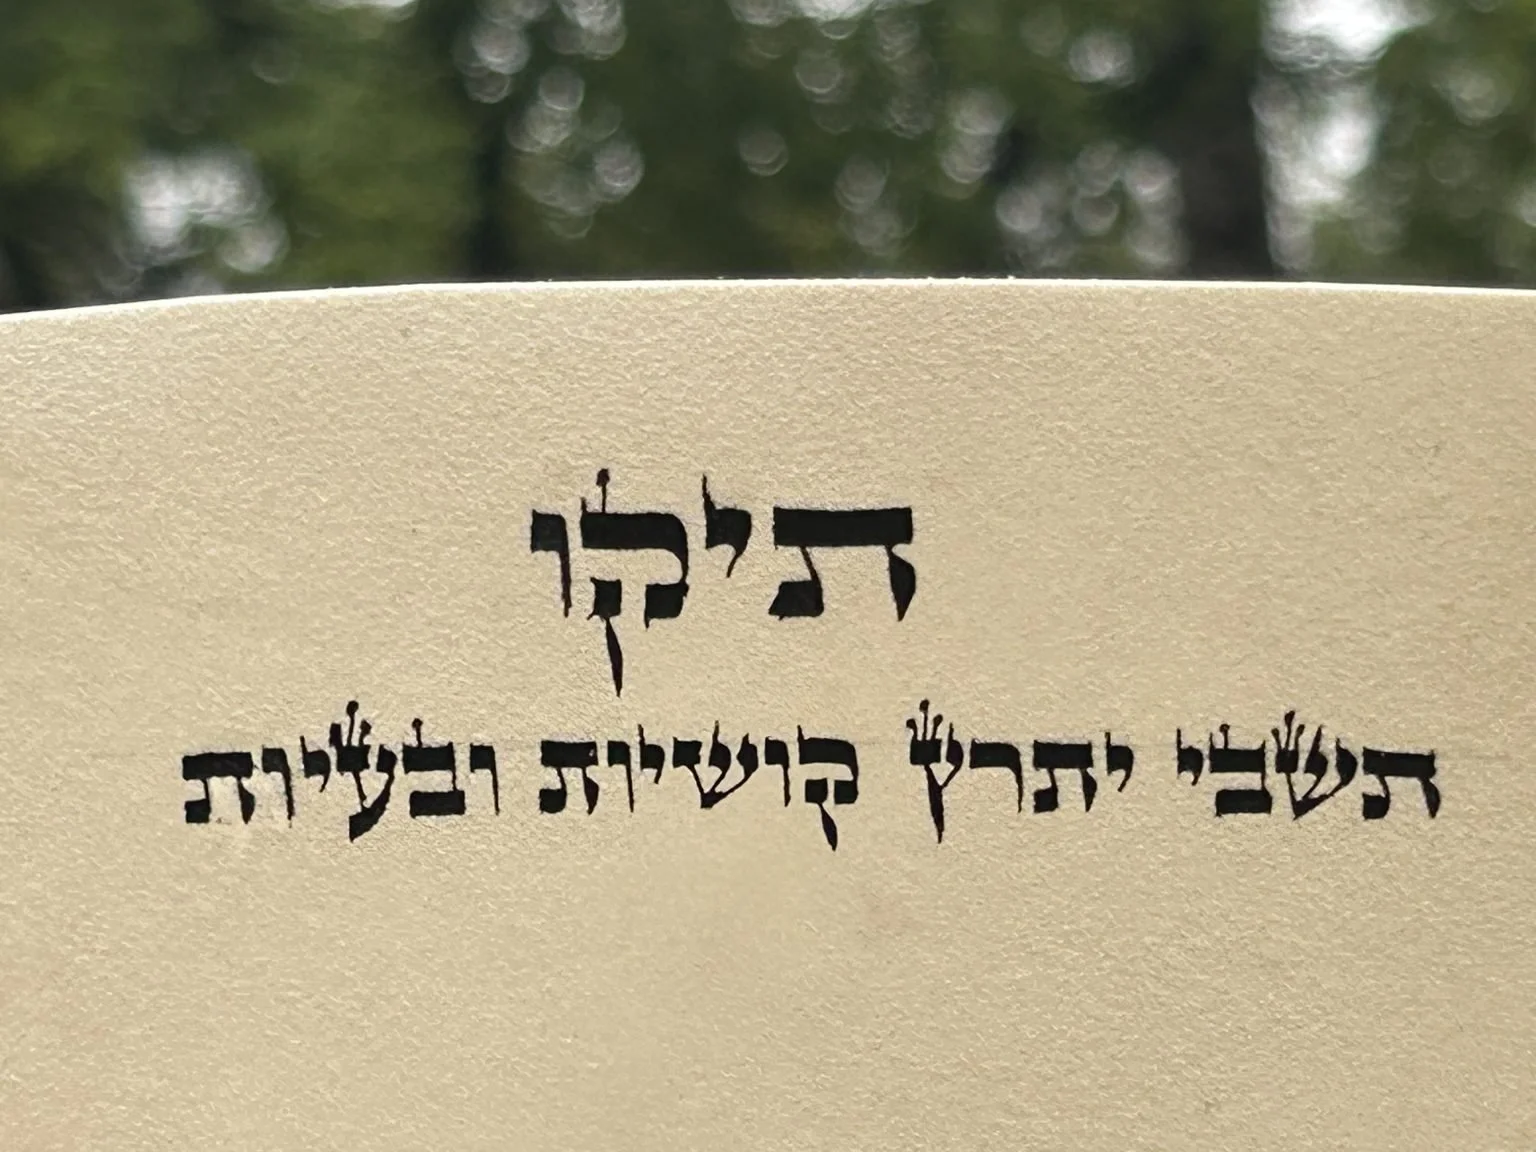 תיקו
תשבי יתרץ קושיות ובעיות